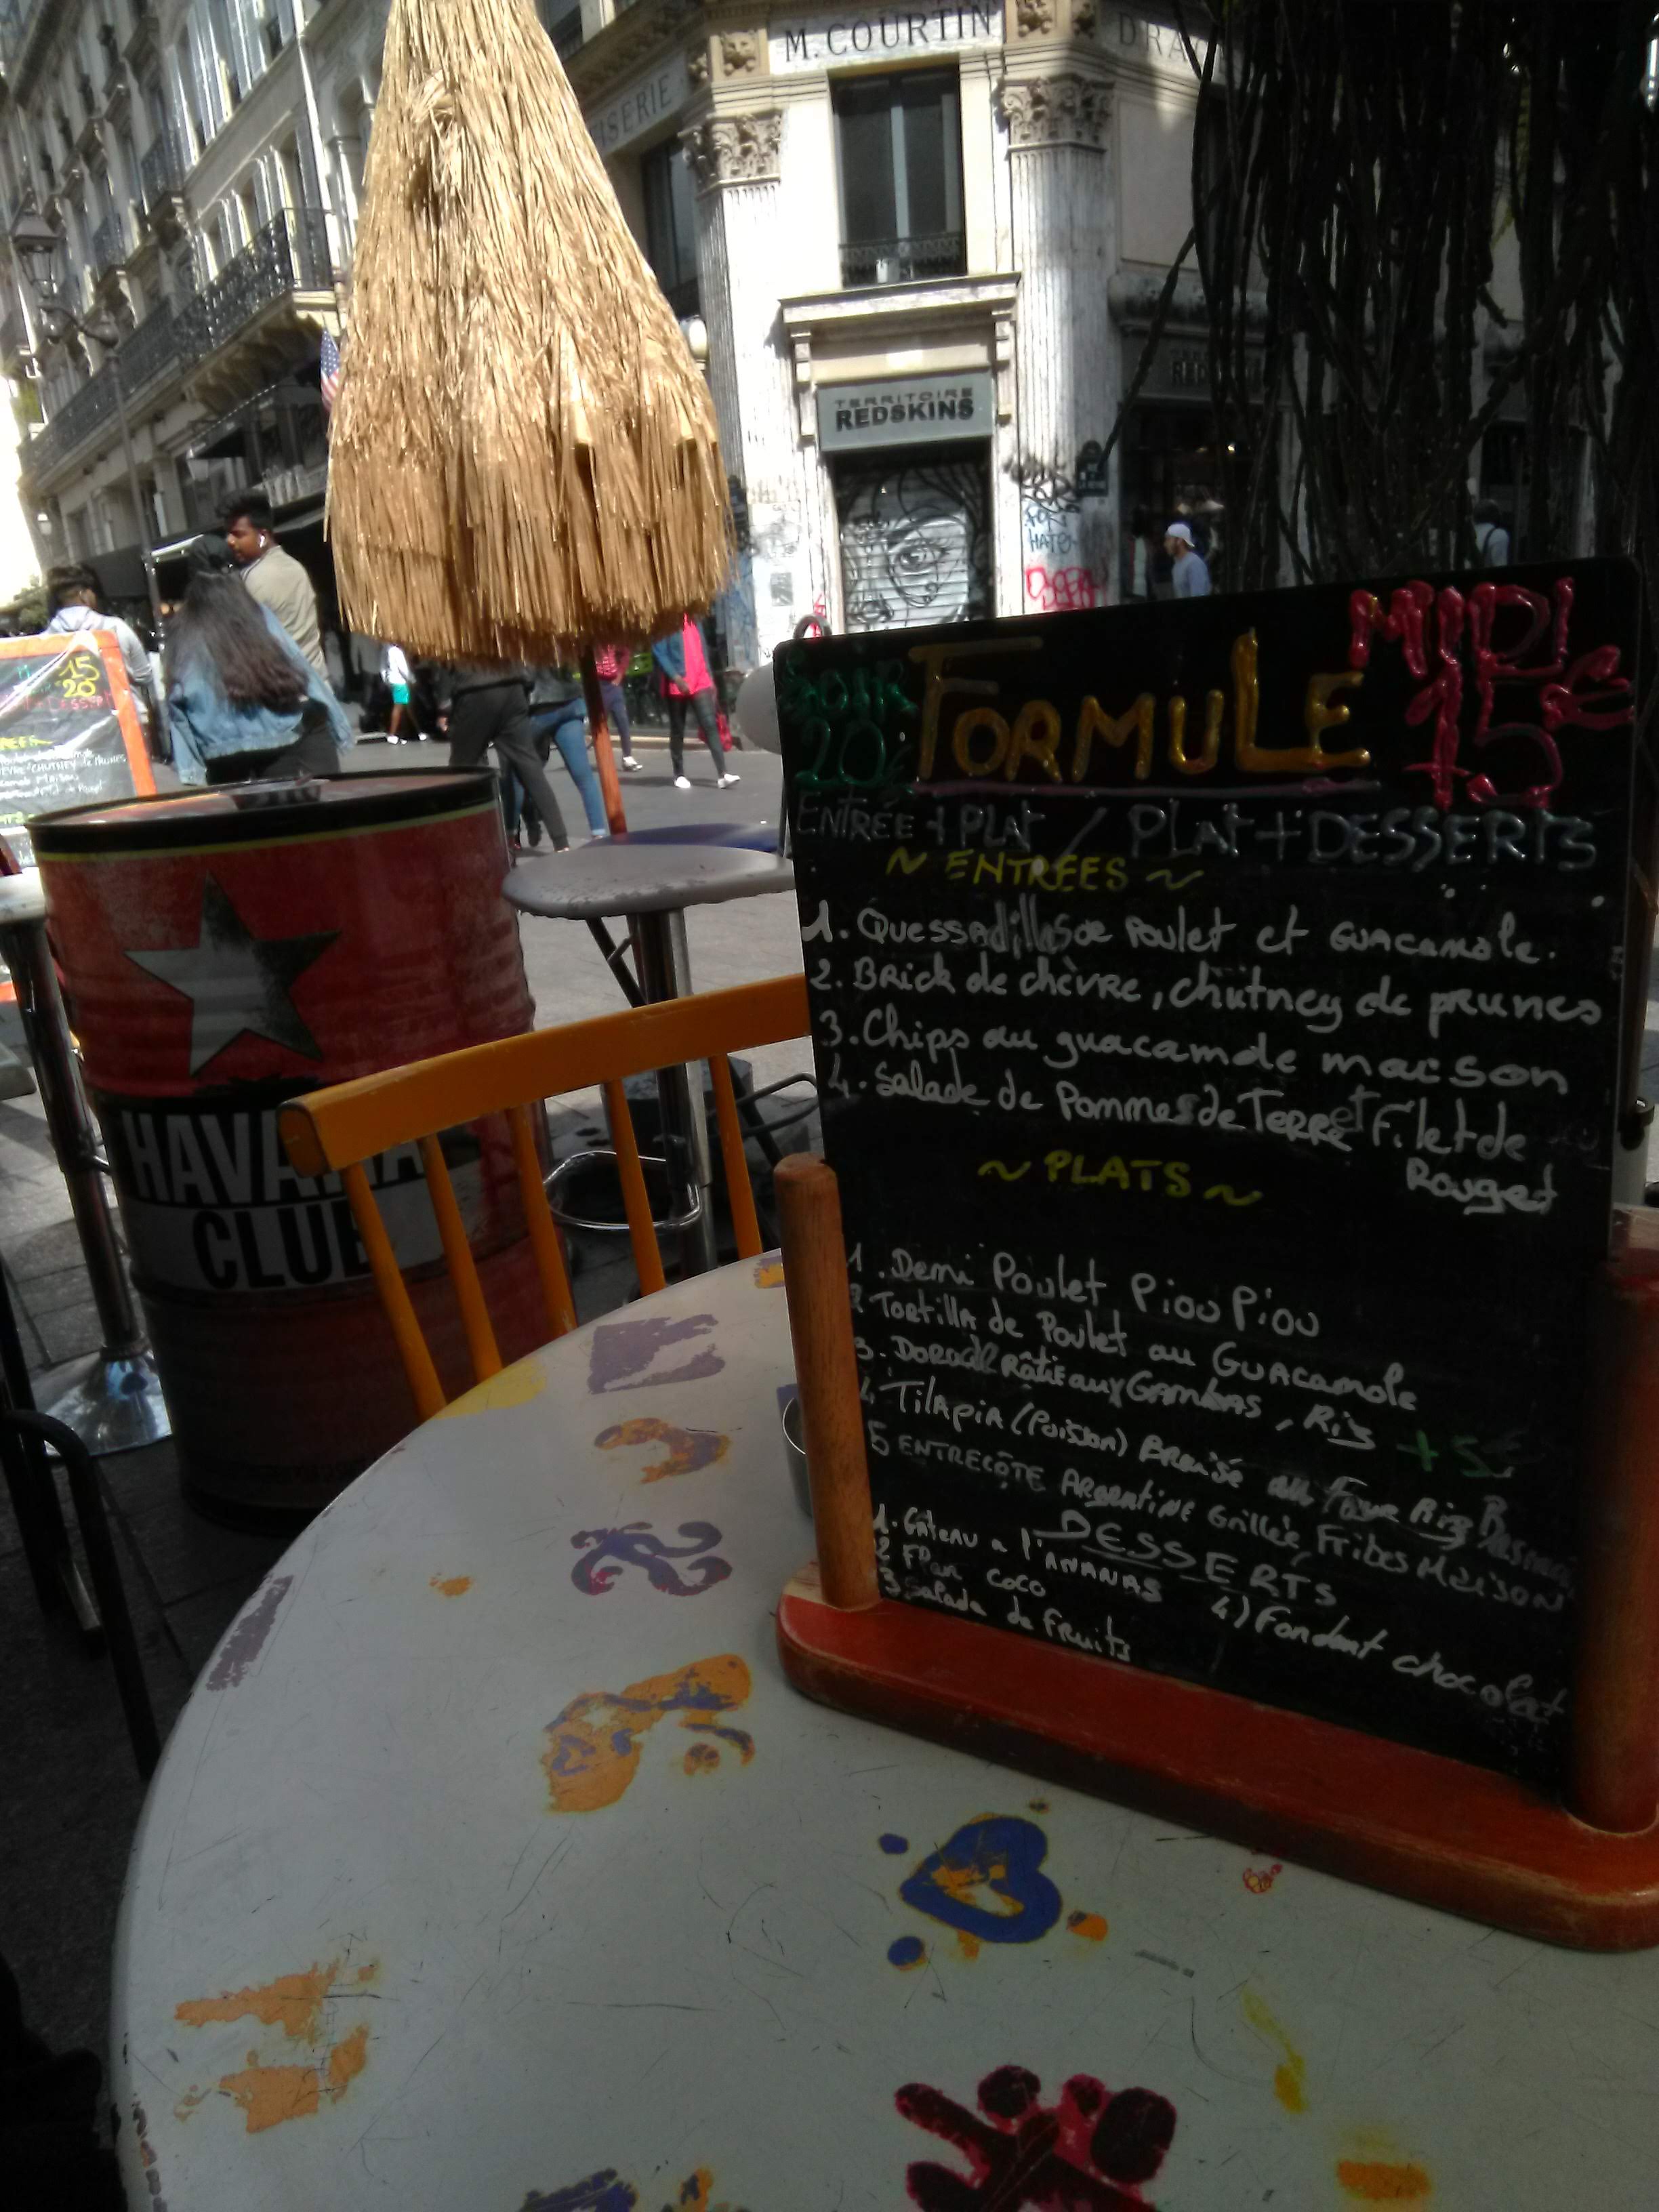 M. COURTIN
TERRITOIRE
REDSKINS
15
20
HAVANA
CLUB
SOIR
20€
FORMULE
MIDI
15€
ENTRÉE + PLAT / PLAT + DESSERTS
~ ENTREES ~
1. Quessadillas de Poulet et GUACamole.
2. Brick de chèvre, chutney de prunes
3. Chips au guacamole maison
4. Salade de Pommes de Terre et Filet de
Rouget
~ PLATS ~
1. Demi Poulet Piou Piou
2 Tortilla de Poulet au GUACamole
3. DORADE Rôtie aux GAMBAS, Riz +5€
4 Tilapia (Poisson) Braisé au Four Riz
5 ENTRECÔTE ARGENTINE Grillée, Frites Maison
DESSERTS
1. Gâteau a l'ANANAS
2 Flan coco
3. Salade de Fruits
4) Fondant chocolat